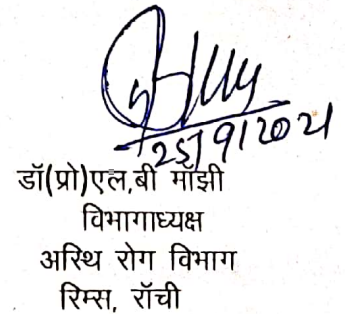 25/9/2021
डॉ(प्रो)एल,बी मॉझी
विभागाध्यक्ष
अस्थि रोग विभाग
रिम्स, रॉची